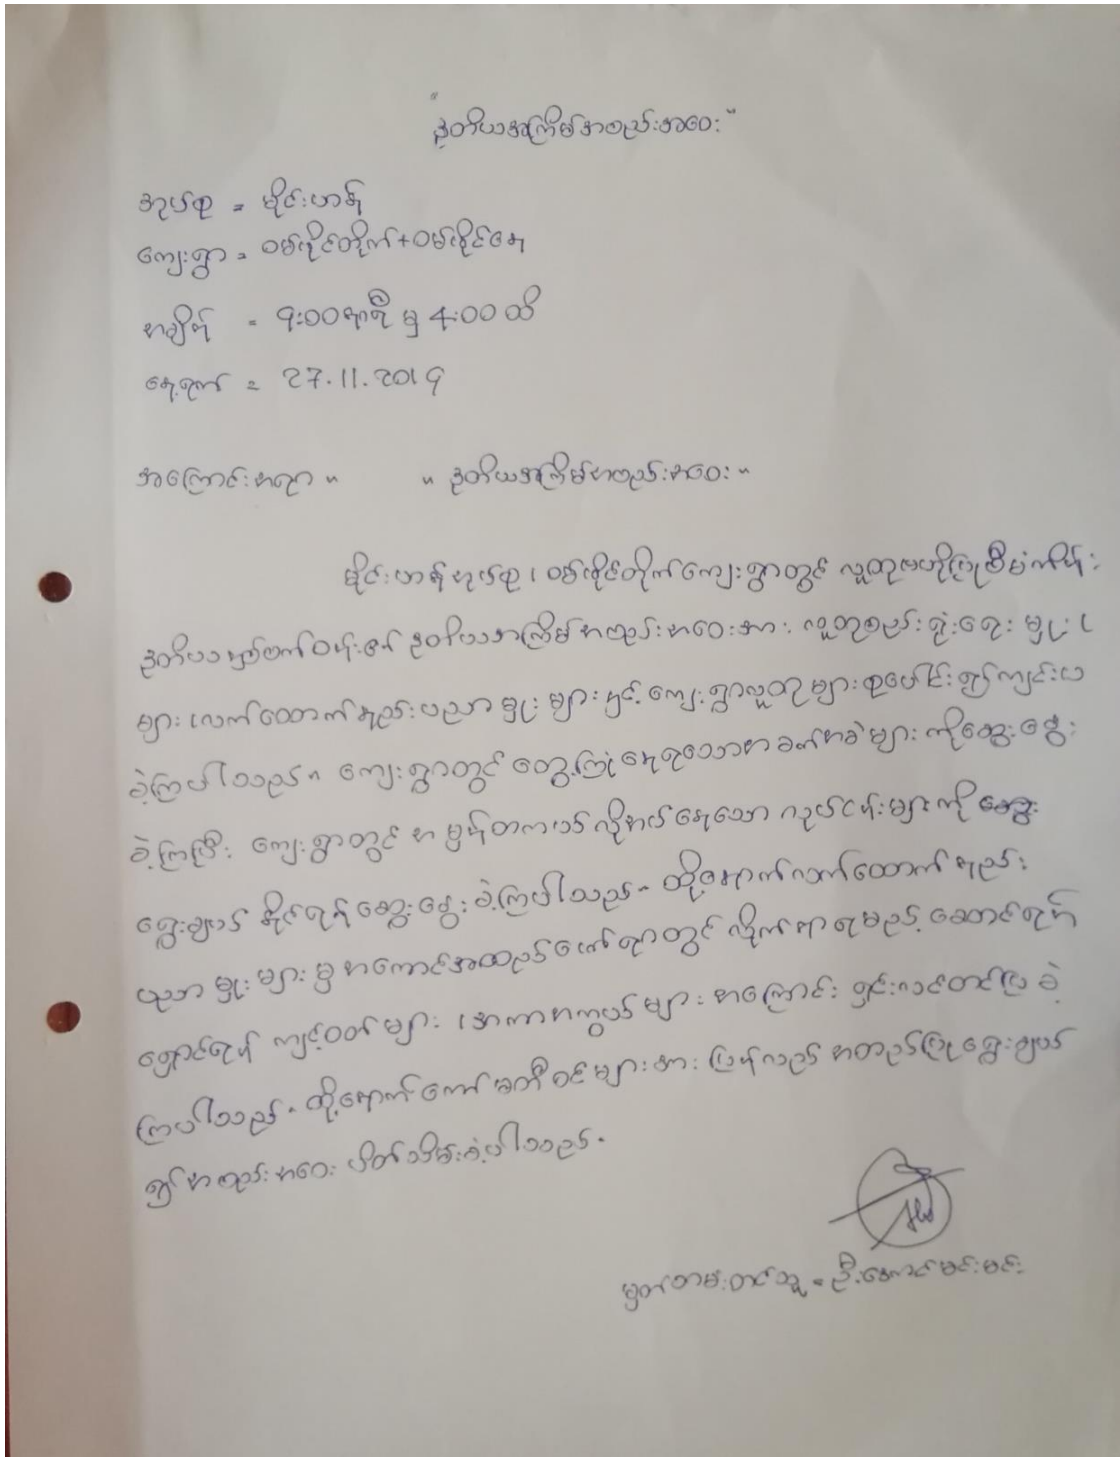 "ဒုတိယအကြိမ်အစည်းအဝေး"
အုပ်စု = မိုင်းဟန်
ကျေးရွာ = ဝမ်ဖိုင်တိုက်+ဝမ်ဖိုင်နေ
အချိန် = 9:00နာရီ မှ 4:00 ထိ
နေ့ရက် = 27.11.2019
အကြောင်းအရာ ။ ။ ဒုတိယအကြိမ်အစည်းအဝေး ။
မိုင်းဟန်အုပ်စု၊ ဝမ်ဖိုင်တိုက်ကျေးရွာတွင် လူထုဗဟိုပြုစီမံကိန်း
ဒုတိယ နှစ်ပတ်ဝန်းဇုန် ဒုတိယအကြိမ် အစည်းအဝေးအား လူထုစည်းရုံးရေး မှူး၊
များ၊ လက်ထောက်နည်းပညာမှူးများနှင့် ကျေးရွာလူထုများစုပေါင်း၍ကျင်းပ
ခဲ့ကြပါသည်။ ကျေးရွာတွင် တွေ့ကြုံနေရသောအခက်အခဲများကိုဆွေးနွေး
ခဲ့ကြပြီး ကျေးရွာတွင် အမှန်တကယ်လိုအပ်နေသော လုပ်ငန်းများကို
ရွေးချယ်နိုင်ရန်ဆွေးနွေးခဲ့ကြပါသည်။ ထို့နောက်လက်ထောက်နည်း
ပညာမှူးများမှ အကောင်အထည်ဖော်ရာတွင် လိုက်နာရမည့် ဆောင်ရန်
ရှောင်ရန် ကျင့်ဝတ်များ၊ အကာအကွယ်များအကြောင်း ရှင်းလင်းတင်ပြခဲ့
ကြပါသည်။ ထို့နောက် ကော်မတီဝင်များအား ပြန်လည်အတည်ပြုရွေးချယ်
၍ အစည်းအဝေး ပိတ်သိမ်းခဲ့ပါသည်။
မှတ်တမ်းတင်သူ = ဦးအောင်မင်းမင်း